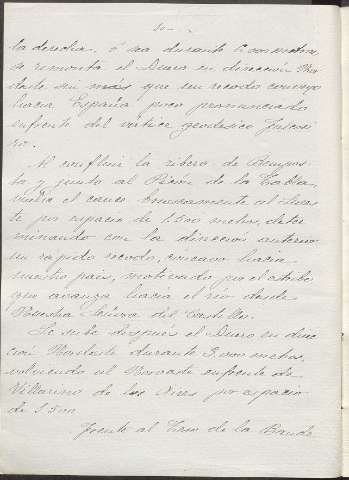 la derecha, ó sea durante 6.000 metros,
se remonta el Duero en dirección Nor
deste sin más que un recodo convexo
hacia España poco pronunciado
enfrente del vértice geodésico
Al confluir la ribera de Bempos
ta y junto al Picón de la Tabla,
vuelve el cauce bruscamente al Sues
te por espacio de 1.500 metros, deter
minando con la dirección anterior
un rápido recodo, concavo hacia
nuestro pais, motivado por el estribo
que avanza hacia el río desde
Nuestra Señora del Castillo.
Se sube después el Duero en direc
ción Nordeste durante 3.000 metros,
volviendo al Noroeste enfrente de
Villarino de los Aires por espacio
de 1.500
Frente al Teso de la Bande